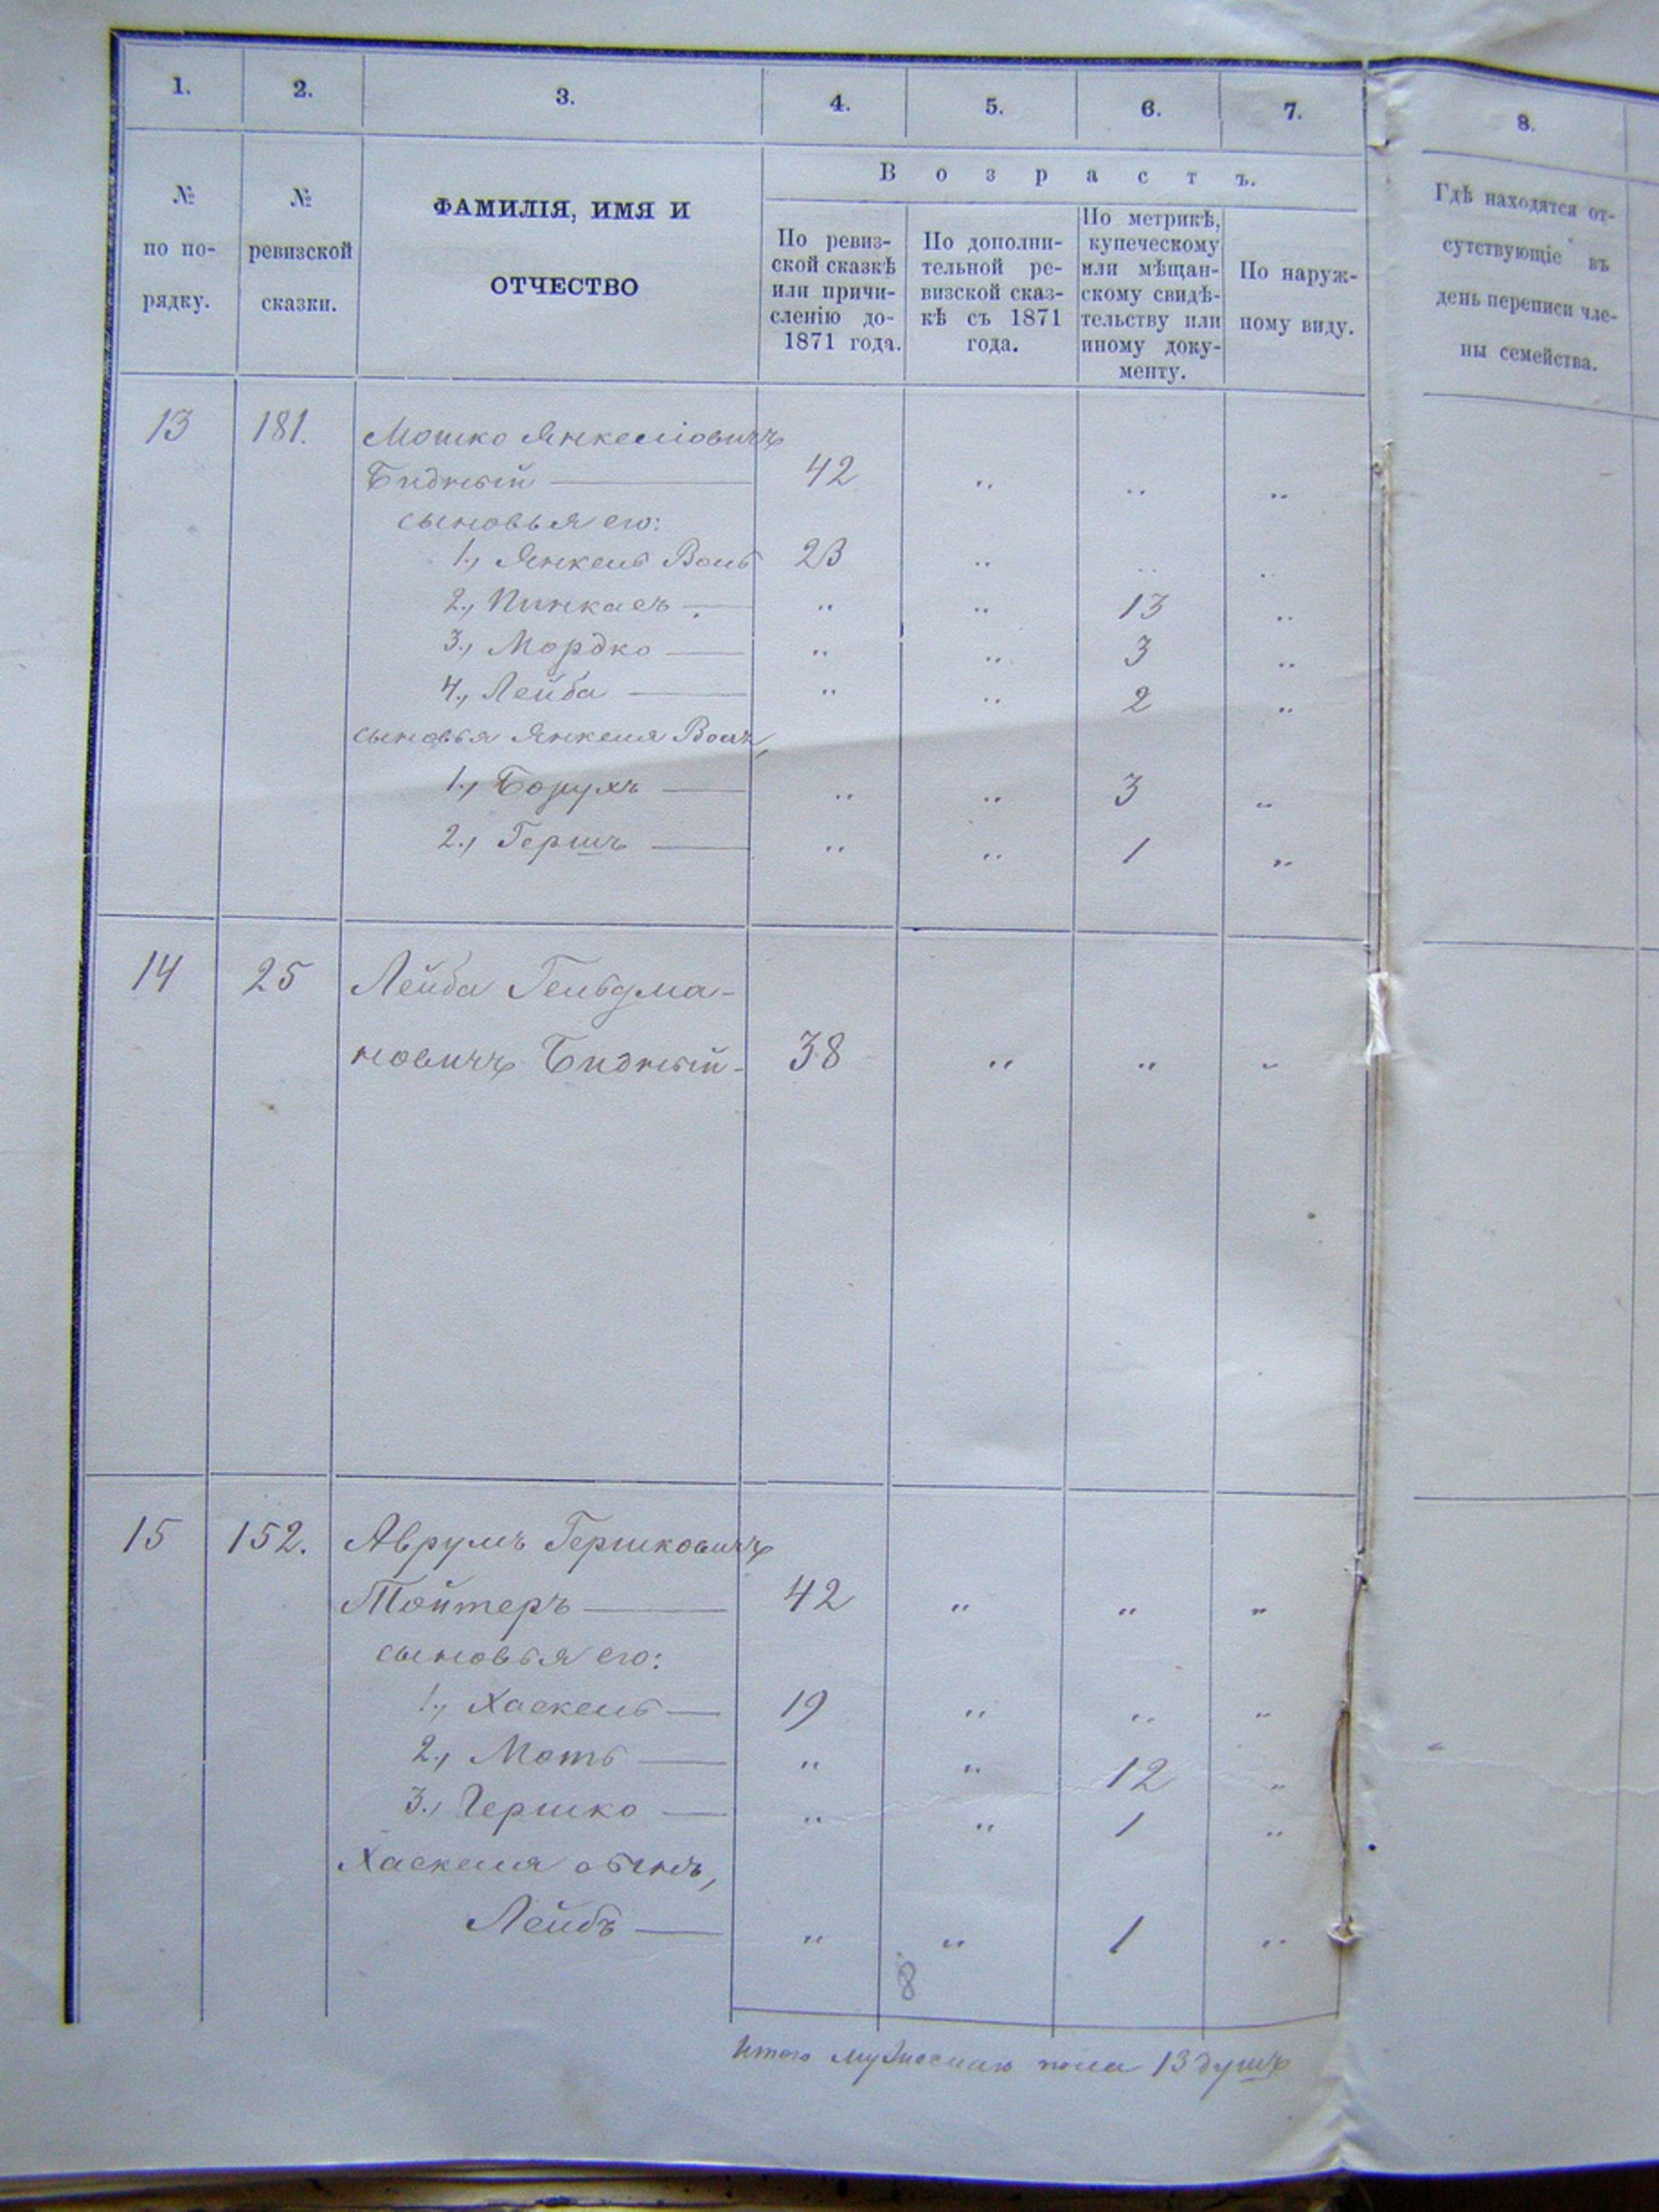 1. 2. 3. 4. 5. 6. 7. 8.
№ по по-
рядку.
№
ревизской
сказки.
ФАМИЛІЯ, ИМЯ И
ОТЧЕСТВО
Возрастъ.
По ревиз-
ской сказкѣ
или причи-
сленію до-
1871 года.
По дополни-
тельной ре-
визской сказ-
кѣ съ 1871
года.
По метрикѣ,
купеческому
или мѣщан-
скому свидѣ-
тельству или
иному доку-
менту.
По наруж-
ному виду.
Гдѣ находятся от-
сутствующіе въ
день переписи чле-
ны семейства.
13 181. Мошко Янкеліовичъ
Бидный — 42 „ „ „
сыновья его:
1., Янкель Воль 23 „ „ „
2., Пинкасъ — „ „ 13 „
3., Мордко — „ „ 3 „
4., Лейба — „ „ 2 „
сыновья Янкеля Воля,
1., Борухъ — „ „ 3 „
2., Гершъ — „ „ 1 „
14 25 Лейба Гельдма-
новичъ Бидный - 38 „ „ „
15 152. Аврумъ Гершковичъ
Тойтеръ — 42 „ „ „
сыновья его:
1., Хаскель — 19 „ „ „
2., Моть — „ „ 12 „
3., Гершко — „ „ 1 „
Хаскеля сынъ,
Лейбъ — „ „ 1 „
8
Итого мужескаго пола 13 душъ